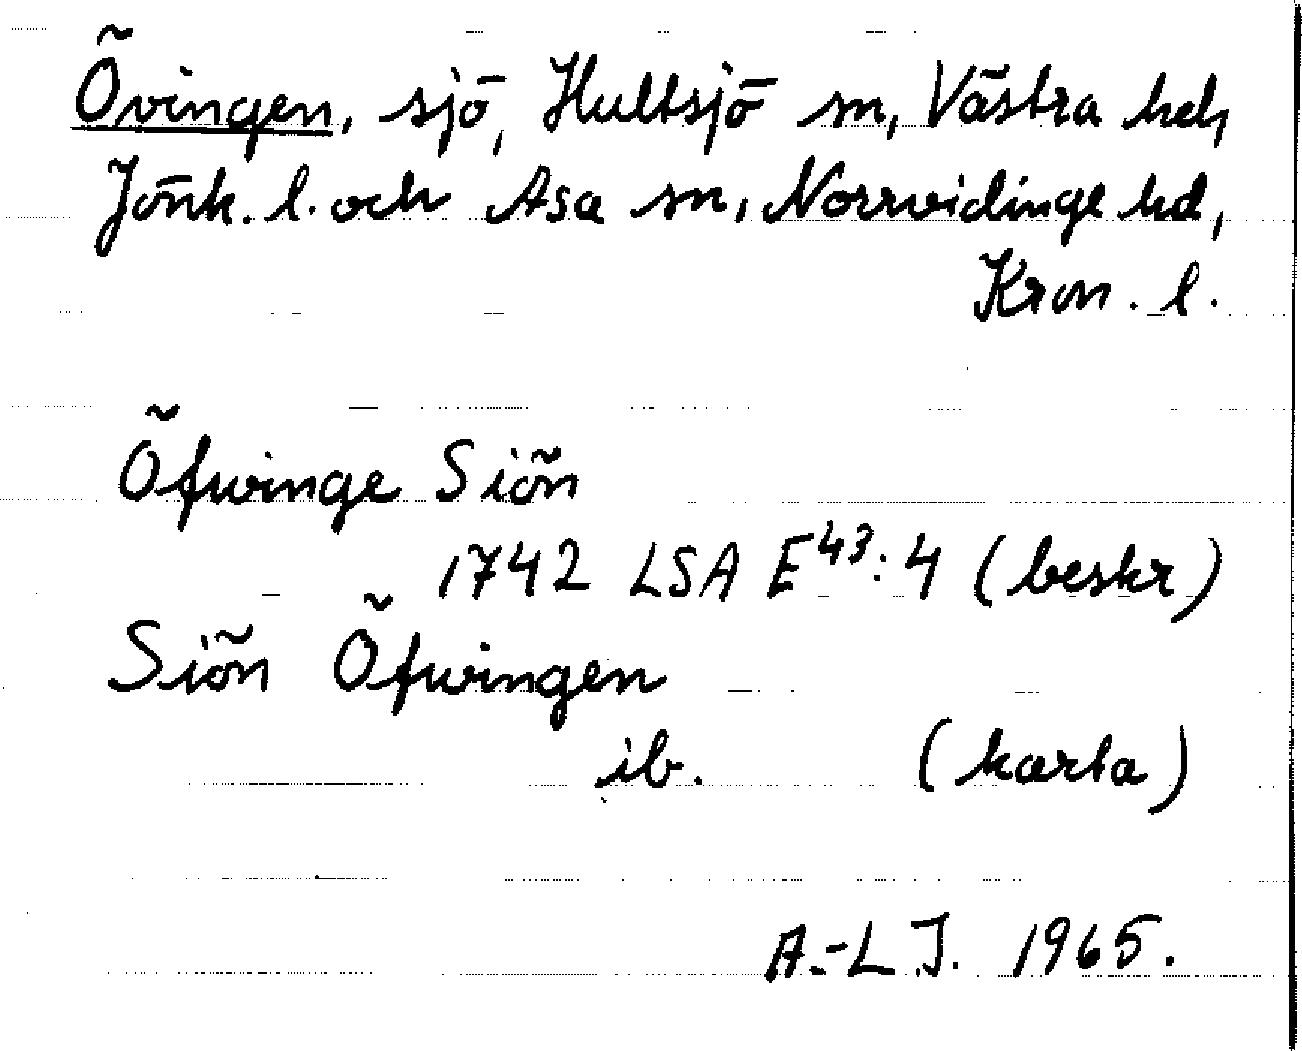 Övingen, sjö, Hultsjö sn, Västra hd,
Jönk. l. och Asa sn, Norrvidinge hd,
Kron. l.
Öfwinge Siön
1742 LSA E43:4 (beskr)
Siön Öfwingen
ib. (karta)
A.-L J. 1965.